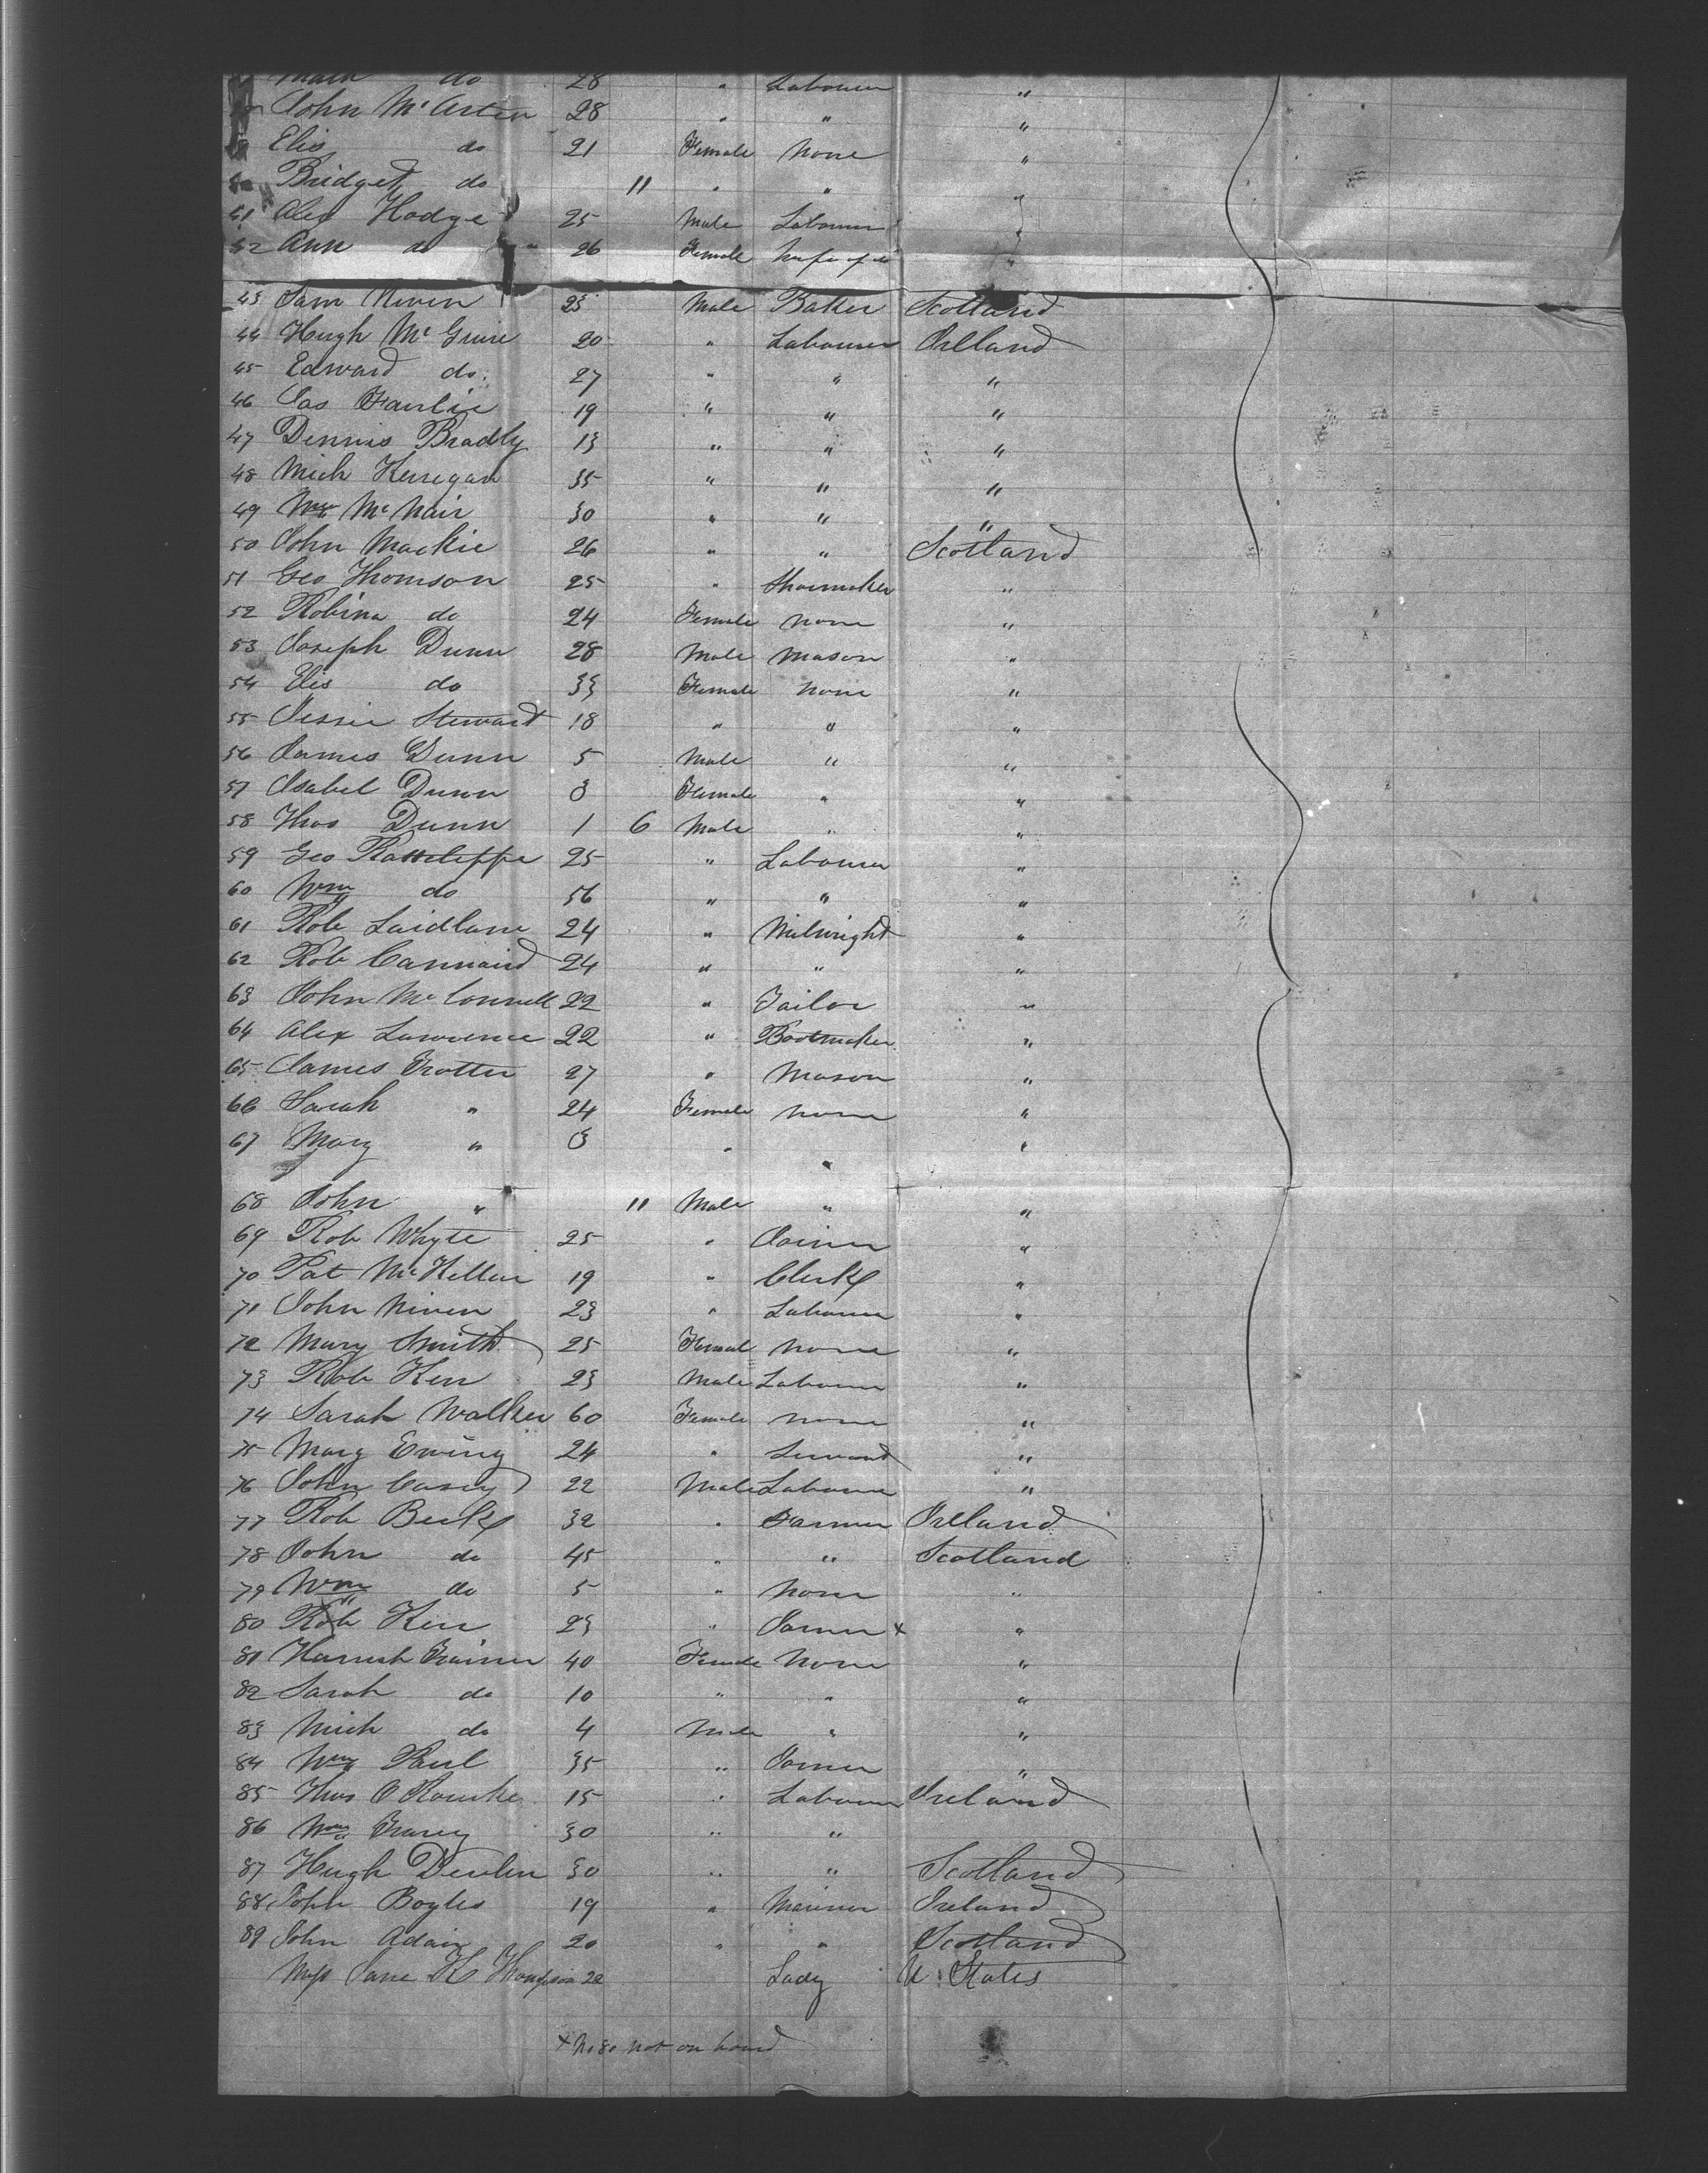 do 28 " Labourer "
John McArten 28 " " "
Elis do 21 Female None "
Bridget do 11 " " "
41 Alex Hodge 25 Male Labourer "
42 Ann do 26 Female Wife of do "
43 Sam Niven 23 Male Baker Scotland
44 Hugh McGuire 20 " Labourer Irelland
45 Edward do. 27 " " "
46 Jas Fairlie 19 " " "
47 Dennis Bradly 13 " " "
48 Mich Kerregan 35 " " "
49 Wm McNair 30 " " "
50 John Mackie 26 " " Scotland
51 Geo Thomson 25 " Shoemaker "
52 Robina do 24 Female None "
53 Joseph Dunn 28 Male Mason "
54 Elis do 33 Female None "
55 Jessie Steward 18 " " "
56 James Dunn 5 Male " "
57 Isabel Dunn 3 Female " "
58 Thos Dunn 1 6 Male " "
59 Geo Rattcleppe 25 " Labourer "
60 Wm do 56 " " "
61 Rob Laidlane 24 " Milwright "
62 Rob Cannaird 24 " " "
63 John McConnell 22 " Tailor "
64 Alex Lawrence 22 " Bootmaker "
65 James Trotter 27 " Mason "
66 Sarah " 24 Female None "
67 Mary " 3 " " "
68 John " 11 Male " "
69 Rob Whyte 25 " Joiner "
70 Pat McKellar 19 " Clerk "
71 John Niven 23 " Labourer "
72 Mary Smith 25 Femal None "
73 Rob Kerr 23 Male Labourer "
74 Sarah Walker 60 Female None "
75 Mary Ewing 24 " Servant "
76 John Casey 22 Male Labourer "
77 Rob Beck 32 " Farmer Ireland
78 John do 45 " " Scotland
79 Wm do 5 " None "
80 Rob Kerr 23 " Joiner x "
81 Hannah Trainer 40 Female None "
82 Sarah do 10 " " "
83 Mich do 4 Male " "
84 Wm Paul 35 " Joiner "
85 Thos O Rourke 15 " Labourer Ireland
86 Wm 30 " "
87 Hugh Devlin 30 " " Scotland
88 Boyles 19 " Mariner Ireland
89 John Adair 20 " " Scotland
Miss Jane K Thompson 22 Lady U. States
x No 80 not on board